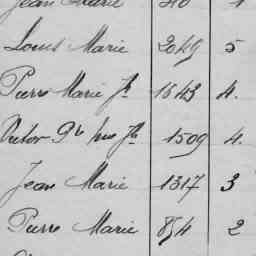 Jean Marie
Louis Marie 2049 5
Pierre Marie Jh 1643 4.
Victor 1509 4.
Jean Marie 1317 3
Pierre Marie 854 2